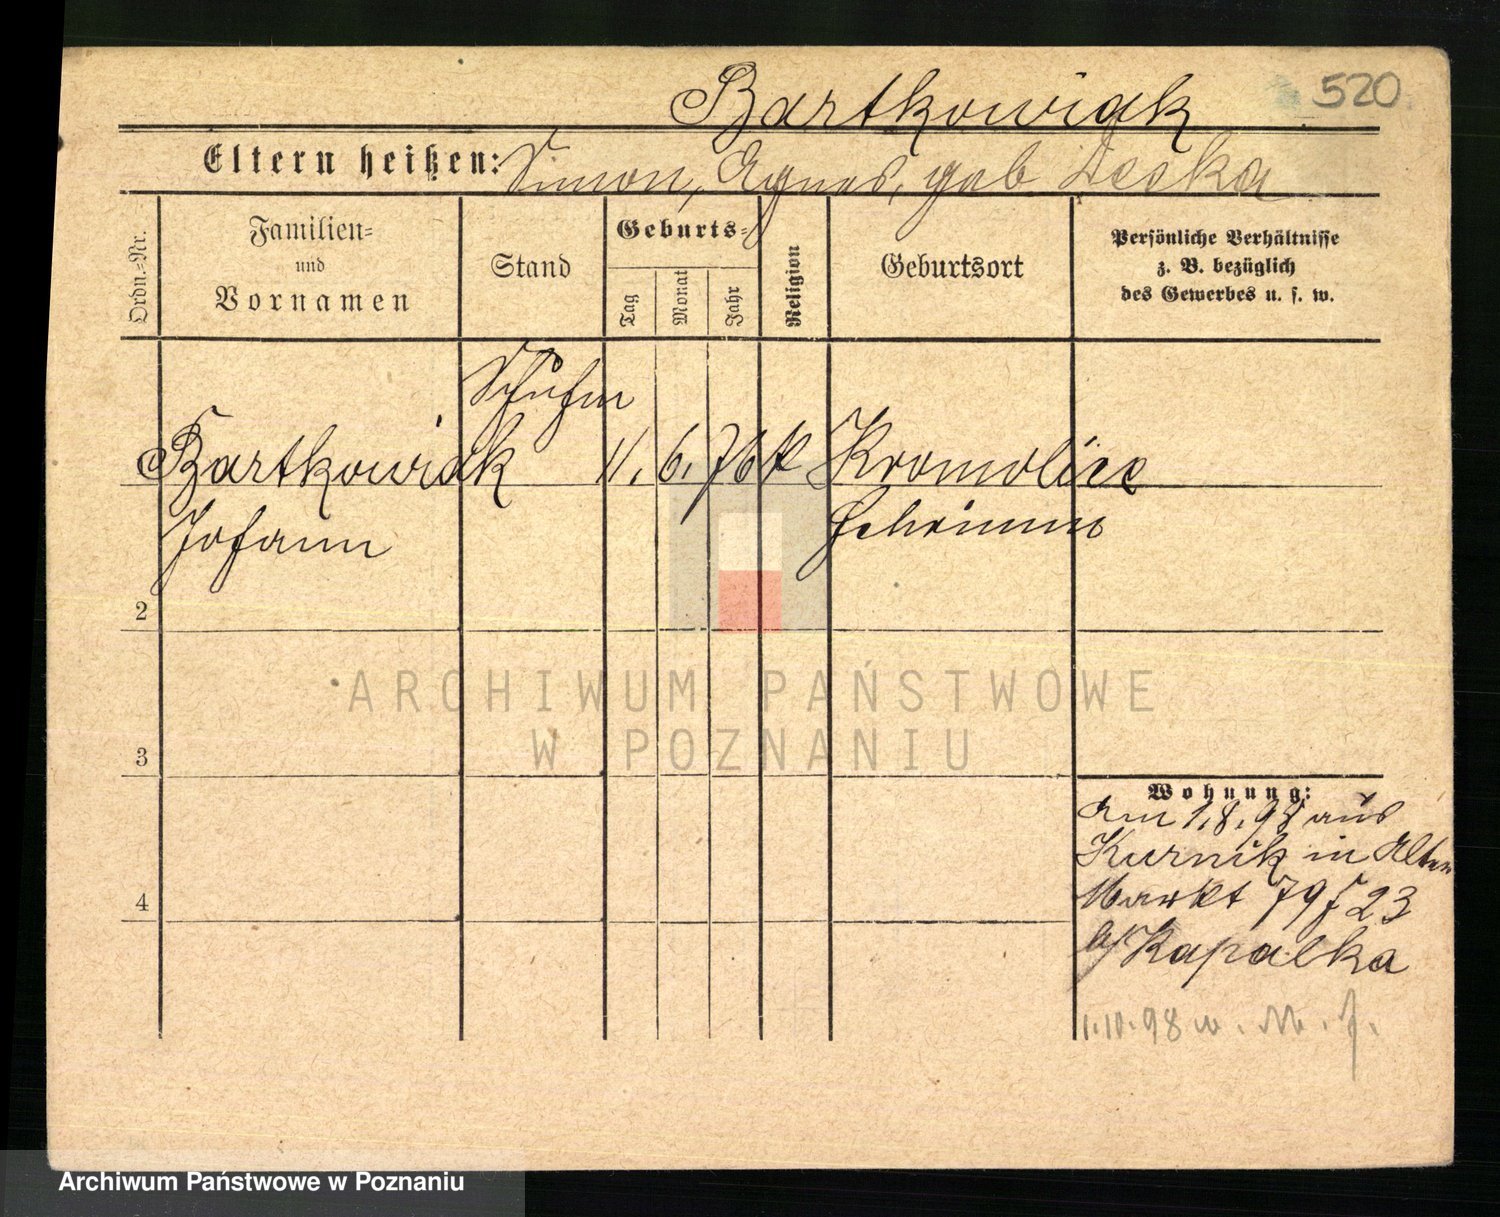 520
Bartkowiak
Eltern heißen: Simon, Agnes, geb Deska
Ordn.=Nr.
Familien=
und
Vornamen
Stand
Geburts=
Tag
Monat
Jahr
Religion
Geburtsort
Persönliche Verhältnisse
z. B. bezüglich
des Gewerbes u. s. w.
Schuhm
Bartkowiak 11. 6. 76 k Kromolice
Johann Schrimm
2
3
4
Wohnung:
Am 1.8.98 aus
Kurnik in Alten
Markt 79 23
b/ Kapalka
1.10.98 w. M. J.
ARCHIWUM PAŃSTWOWE
W POZNANIU
Archiwum Państwowe w Poznaniu